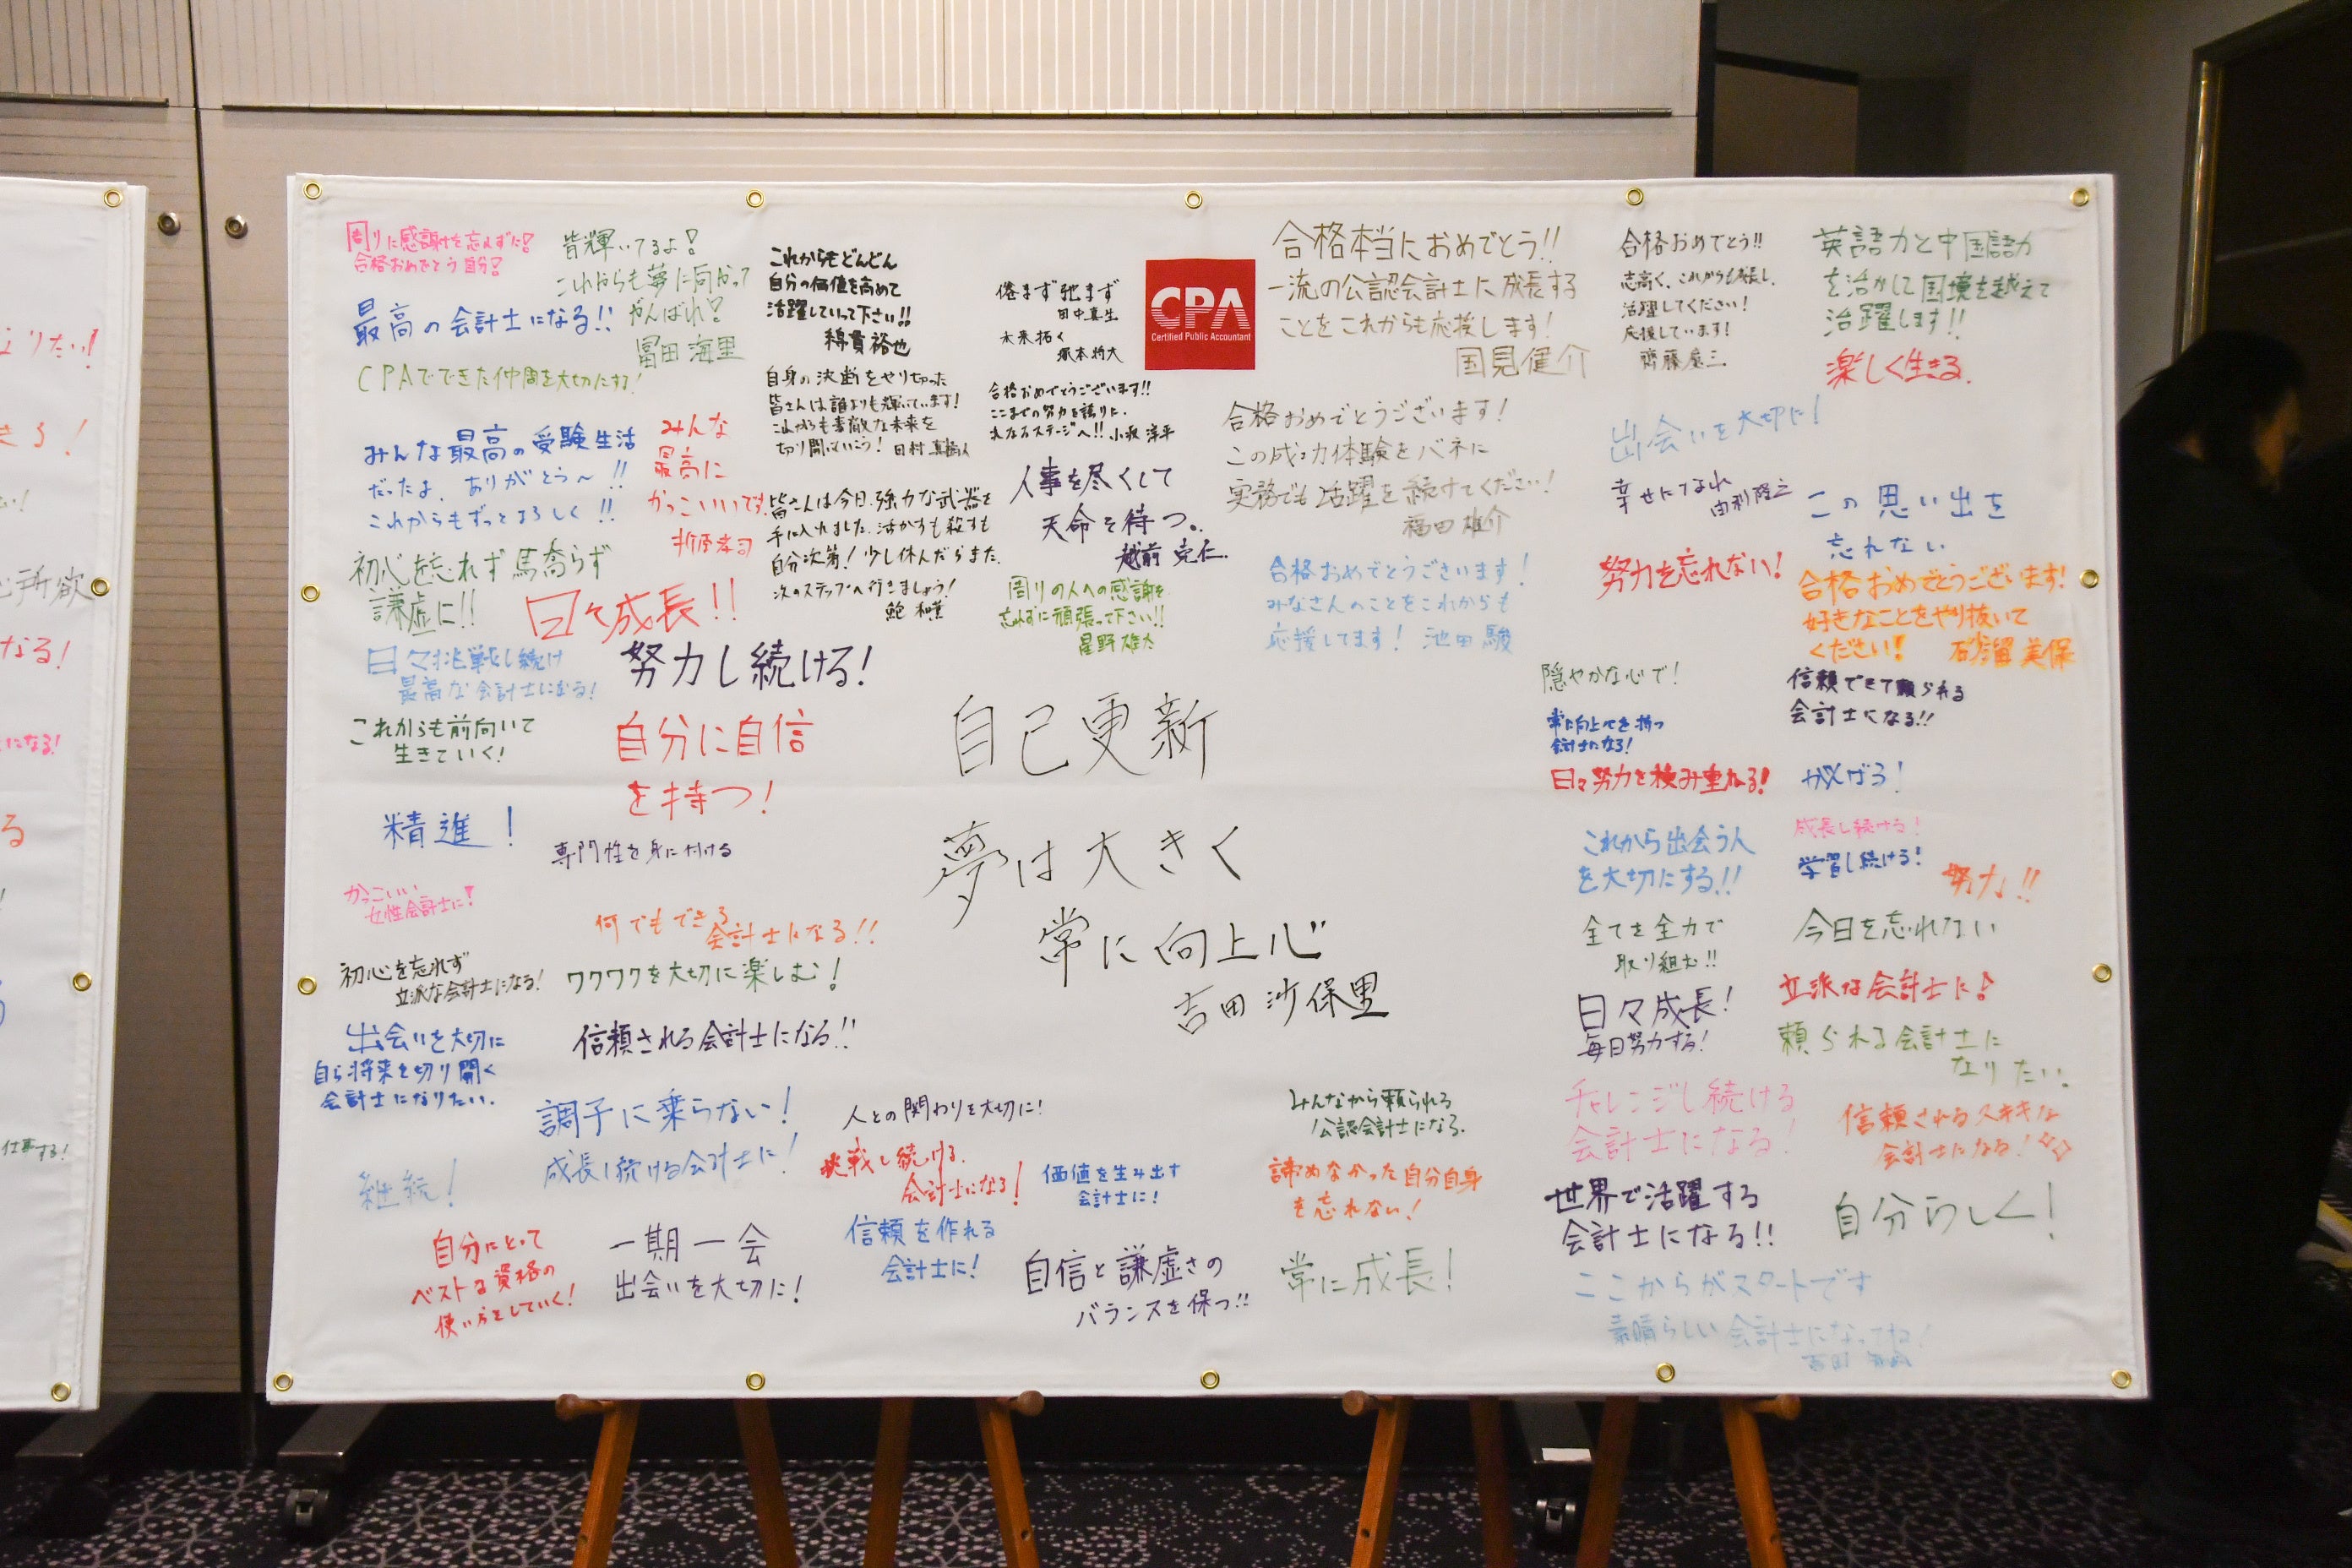 周りに感謝を忘れずに!
合格おめでとう自分!
最高の会計士になる!!
CPAでできた仲間を大切にする!
皆輝いてるよ!
これからも夢に向かって
がんばれ!
冨田 海里
みんな最高の受験生活
だったよ、ありがとう〜!!
これからもずっとよろしく!!
みんな
最高に
かっこいいです!
折原孝司
初心を忘れず 驕らず
謙虚に!!
日々成長!!
日々挑戦し続け
最高な会計士になる!
努力し続ける!
これからも前向いて
生きていく!
自分に自信
を持つ!
精進!
専門性を身に付ける
かっこいい
女性会計士に!
何でもできる
会計士になる!!
初心を忘れず
立派な会計士になる!
ワクワクを大切に楽しむ!
出会いを大切に
自ら将来を切り開く
会計士になりたい.
信頼される会計士になる!!
調子に乗らない!
成長し続ける会計士に!
継続!
自分にとって
ベストな資格の
使い方をしていく!
一期一会
出会いを大切に!
これからもどんどん
自分の価値を高めて
活躍していって下さい!!
綿貫裕也
自身の決断をやり切った
皆さんは誰よりも輝いています!
これからも素敵な未来を
切り開いていこう!
皆さんは今日、強力な武器を
手に入れました。活かすも殺すも
自分次第!少し休んだらまた、
次のステップへ行きましょう!
倦まず弛まず
田中真生
未来拓く
塚本将大
CPA
Certified Public Accountant
合格おめでとうございます!!
ここまでの努力を誇りに、
次なるステージへ!! 小坂 洋平
人事を尽くして
天命を待つ。
越前 克仁
周りの人への感謝を
忘れずに頑張って下さい!!
星野雄太
自己更新
夢は大きく
常に向上心
吉田沙保里
合格本当におめでとう!!
一流の公認会計士に成長する
ことをこれからも応援します!
国見健介
合格おめでとうございます!
この成功体験をバネに
実務でも活躍を続けてください!
福田雄介
合格おめでとうございます!
みなさんのことをこれからも
応援してます! 池田 駿
合格おめでとう!!
志高く、これからも成長し、
活躍してください!
応援しています!
英語力と中国語力
を活かして国境を越えて
活躍します!!
楽しく生きる.
出会いを大切に!
幸せになれ
由利隆之
この思い出を
忘れない
努力を忘れない!
合格おめでとうございます!
好きなことをやり抜いて
ください! 砂溜 美保
隠やかな心で!
信頼できて頼られる
会計士になる!!
常に向上心を持つ
会計士になる!
日々努力を積み重ねる!
がんばろ!
これから出会う人
を大切にする!!
成長し続ける!
学習し続ける!
努力!!
全てを全力で
取り組む!!
今日を忘れない
日々成長!
毎日努力する!
立派な会計士に!
頼られる会計士に
なりたい.
チャレンジし続ける
会計士になる!
信頼されるステキな
会計士になる!
世界で活躍する
会計士になる!!
自分らしく!
ここからがスタートです
素晴らしい会計士になってね!
人との関わりを大切に!
挑戦し続ける.
会計士になる!
価値を生み出す
会計士に!
信頼を作れる
会計士に!
自信と謙虚さの
バランスを保つ!!
みんなから頼られる
公認会計士になる.
諦めなかった自分自身
を忘れない!
常に成長!
りたい!
きる!
心所欲
なる!
になる!
る
仕事する!